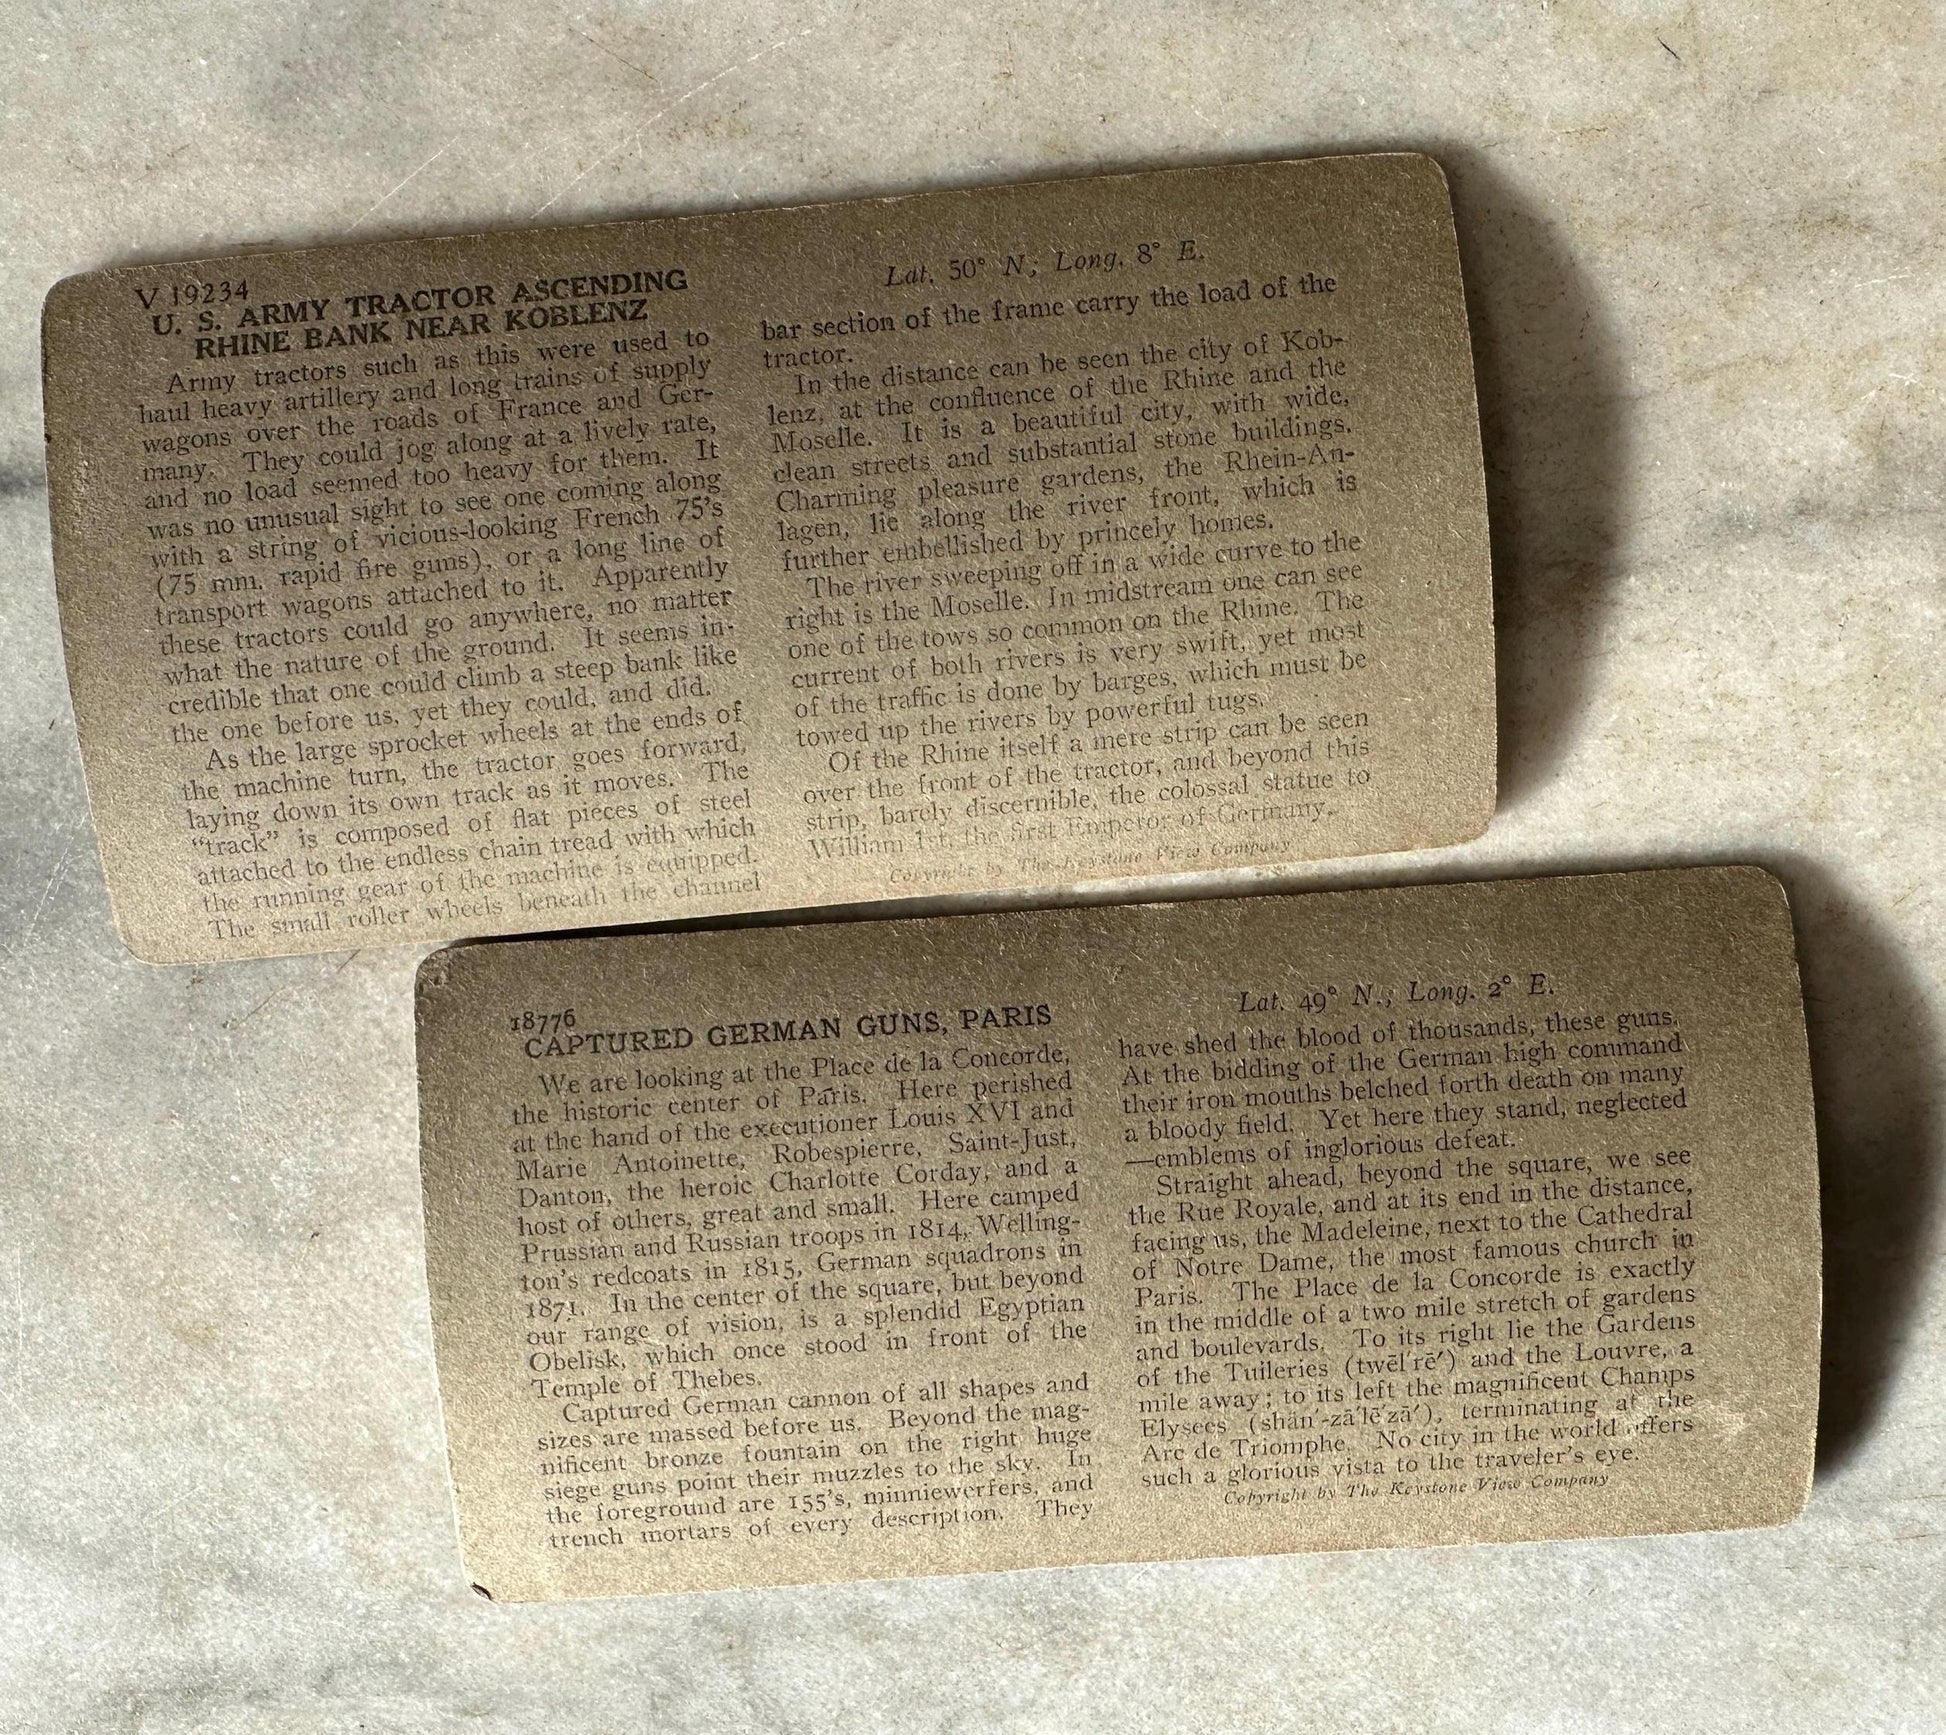 V 19234
U. S. ARMY TRACTOR ASCENDING
RHINE BANK NEAR KOBLENZ
Army tractors such as this were used to
haul heavy artillery and long trains of supply
wagons over the roads of France and Ger-
many. They could jog along at a lively rate,
and no load seemed too heavy for them. It
was no unusual sight to see one coming along
with a string of vicious-looking French 75's
(75 mm. rapid fire guns), or a long line of
transport wagons attached to it. Apparently
these tractors could go anywhere, no matter
what the nature of the ground. It seems in-
credible that one could climb a steep bank like
the one before us, yet they could, and did.
As the large sprocket wheels at the ends of
the machine turn, the tractor goes forward,
laying down its own track as it moves. The
"track" is composed of flat pieces of steel
attached to the endless chain tread with which
the running gear of the machine is equipped.
The small roller wheels beneath the channel
Lat. 50° N; Long. 8° E.
bar section of the frame carry the load of the
tractor.
In the distance can be seen the city of Kob-
lenz, at the confluence of the Rhine and the
Moselle. It is a beautiful city, with wide,
clean streets and substantial stone buildings.
Charming pleasure gardens, the Rhein-An-
lagen, lie along the river front, which is
further embellished by princely homes.
The river sweeping off in a wide curve to the
right is the Moselle. In midstream one can see
one of the tows so common on the Rhine. The
current of both rivers is very swift, yet most
of the traffic is done by barges, which must be
towed up the rivers by powerful tugs.
Of the Rhine itself a mere strip can be seen
over the front of the tractor, and beyond this
strip, barely discernible, the colossal statue to
William 1st, the first Emperor of Germany.
Copyright by The Keystone View Company
18776
CAPTURED GERMAN GUNS, PARIS
We are looking at the Place de la Concorde,
the historic center of Paris. Here perished
at the hand of the executioner Louis XVI and
Marie Antoinette, Robespierre, Saint-Just,
Danton, the heroic Charlotte Corday, and a
host of others, great and small. Here camped
Prussian and Russian troops in 1814, Welling-
ton's redcoats in 1815, German squadrons in
1871. In the center of the square, but beyond
our range of vision, is a splendid Egyptian
Obelisk, which once stood in front of the
Temple of Thebes.
Captured German cannon of all shapes and
sizes are massed before us. Beyond the mag-
nificent bronze fountain on the right huge
siege guns point their muzzles to the sky. In
the foreground are 155's, minniewerfers, and
trench mortars of every description. They
Lat. 49° N.; Long. 2° E.
have shed the blood of thousands, these guns.
At the bidding of the German high command
their iron mouths belched forth death on many
a bloody field. Yet here they stand, neglected
—emblems of inglorious defeat.
Straight ahead, beyond the square, we see
the Rue Royale, and at its end in the distance,
facing us, the Madeleine, next to the Cathedral
of Notre Dame, the most famous church in
Paris. The Place de la Concorde is exactly
in the middle of a two mile stretch of gardens
and boulevards. To its right lie the Gardens
of the Tuileries (twēl′rē′) and the Louvre, a
mile away; to its left the magnificent Champs
Elysees (shän′-zā′lē′zā′), terminating at the
Arc de Triomphe. No city in the world offers
such a glorious vista to the traveler's eye.
Copyright by The Keystone View Company